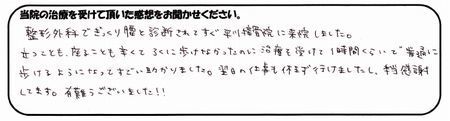 当院の治療を受けて頂いた感想をお聞かせください。
整形外科でぎっくり腰と診断されてすぐ平川接骨院に来院しました。
立つことも、座ることも辛くてろくに歩けなかったのに治療を受けて1時間くらいで普通に
歩けるようになってすごい助かりました。翌日の仕事も休まず行けましたし、本当感謝
してます。有難うございました!!